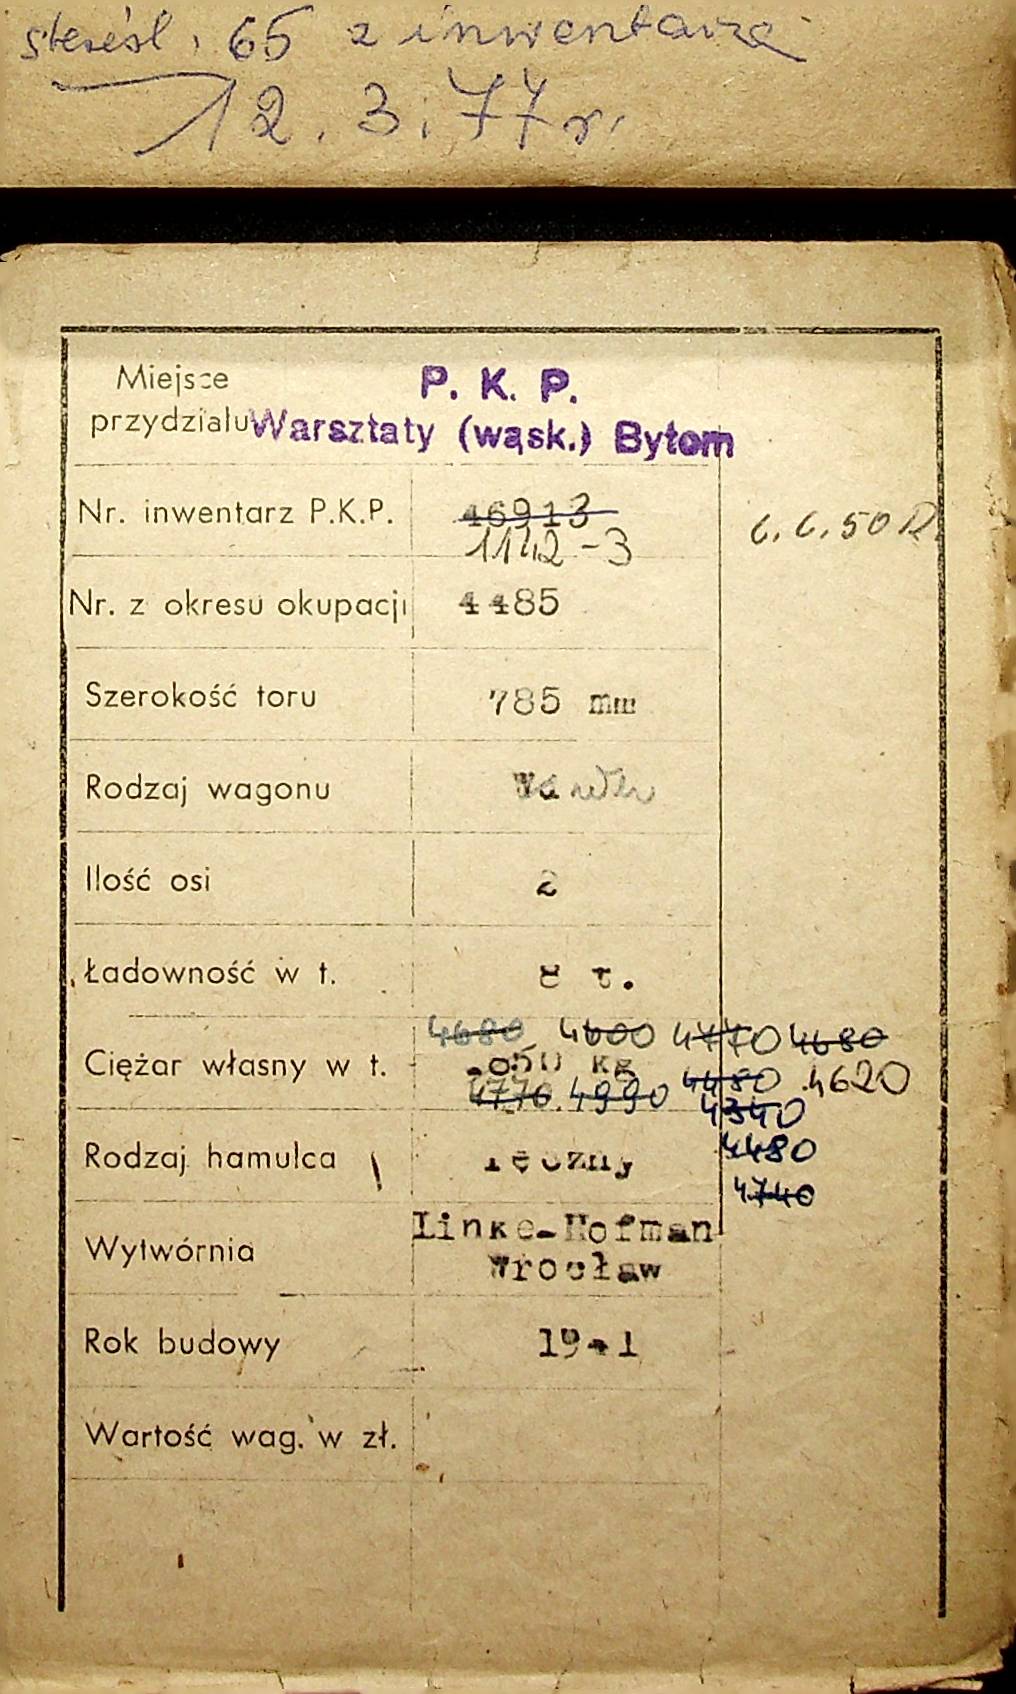 65 z inwentarza
12.3.77 r.
Miejsce
przydziału
P. K. P.
Warsztaty (wąsk.) Bytom
Nr. inwentarz P.K.P. 46913
1142-3
6.6.50 R
Nr. z okresu okupacji 4485
Szerokość toru 785 mm
Rodzaj wagonu
Ilość osi 2
Ładowność w t. 8 t.
4680 4600 4770 4680
Ciężar własny w t. kg
4770 4990 4480 4620
4340
Rodzaj hamulca ręczny 4480
4740
Linke-Hofman
Wytwórnia
Wrocław
Rok budowy 1941
Wartość wag. w zł.